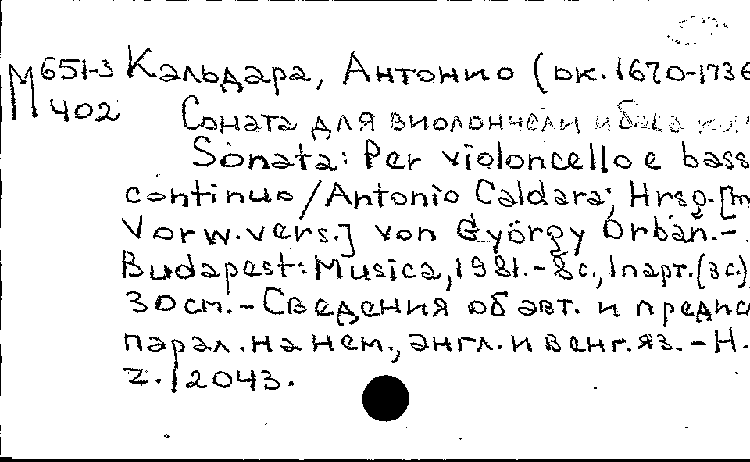 М 651-3 Кальдара, Антонио (ок. 1670-1736
402 Соната для виолончели и баса
Sonata: Per violoncello e bass
continuo / Antonio Caldara; Hrsg. [m
Vorw. vers.] von György Orbán. -
Budapest: Musica, 1981. - 8 с., 1 парт. (3 с.)
30 см. - Сведения об авт. и предис
парал. на нем., англ. и венг. яз. - Н.
Z. 12043.